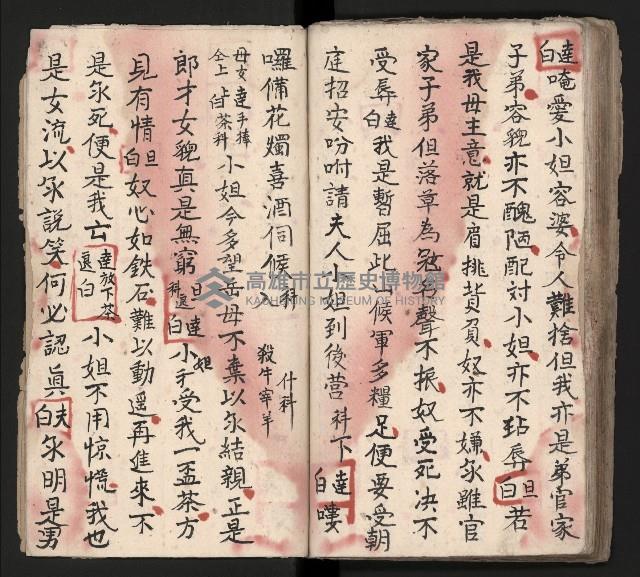 達白唵愛小姐容婆令人難捨但我亦是弟官家
子弟容貌亦不醜陋配対小姐亦不玷辱旦白若
是我母主意就是肩挑背負奴亦不嫌汆雖官
家子弟但落草為冦聲不振奴受死决不
受辱達白我是暫屈此候軍多糧足便要受朝
庭招安吩咐請夫人小姐到後营科下達白嘍
囉備花燭喜酒伺候科 什科 殺牛宰羊
母女仝上達手捧茶科白小姐今多望岳母不棄以汆結親正是
郎才女貌真是無窮旦科退達白小姐手受我一盃茶方
見有情旦白奴心如鉄石難以動遥再進來不
是汆死便是我亡達放下茶退白小姐不用惊慌我也
是女流以汆説笑何必認真夫白汆明是男
高雄市立歷史博物館
KAOHSIUNG MUSEUM OF HISTORY